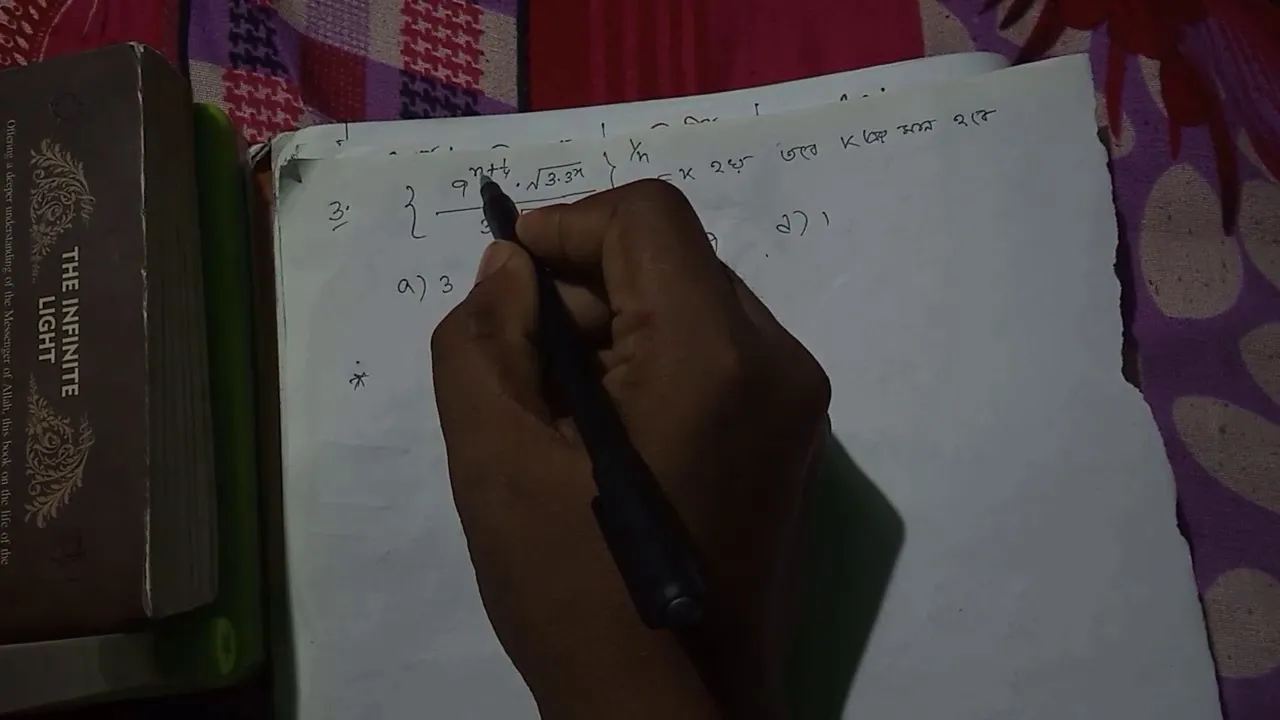 THE INFINITE
LIGHT
Offering a deeper understanding of the Messenger of Allah, this book on the life of the
3. { 9^(n+1/4) · √(3·3^n) / 3 }^(1/n) = K হয় তবে K এর মান হবে
a) 3 d) 1
*